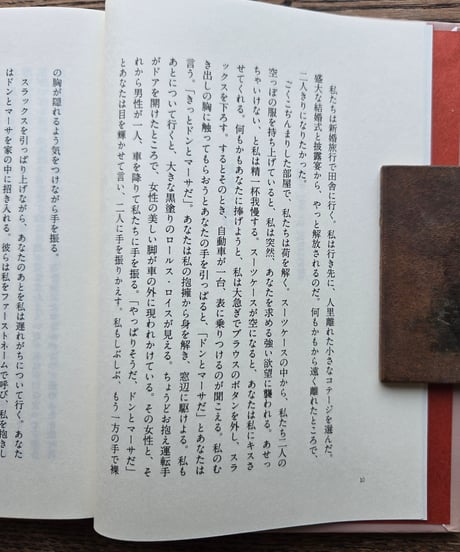 私たちは新婚旅行で田舎に行く。私は行き先に、人里離れた小さなコテージを選んだ。
盛大な結婚式と披露宴から、やっと解放されるのだ。何もかもから遠く離れたところで、
二人きりになりたかった。
ごくこぢんまりした部屋で、私たちは荷を解く。スーツケースの中から、私たち二人の
空っぽの服を持ち上げていると、私は突然、あなたを求める強い欲望に襲われる。あせっ
ちゃいけない、と私は精一杯我慢する。スーツケースが空になると、あなたは私にキスさ
せてくれる。何もかもあなたに捧げようと、私は大急ぎでブラウスのボタンを外し、スラ
ックスを下ろす。するとそのとき、自動車が一台、表に乗りつけるのが聞こえる。私のむ
き出しの胸に触ってもらおうとあなたの手を引っぱると、「ドンとマーサだ」とあなたは
言う。「きっとドンとマーサだ」。あなたは私の抱擁から身を解き、窓辺に駆けよる。私も
あとについて行くと、大きな黒塗りのロールス・ロイスが見える。ちょうどお抱え運転手
がドアを開けたところで、女性の美しい脚が車の外に現われかけている。その女性と、そ
れから男性が一人、車を降りて私たちに手を振る。「やっぱりそうだ、ドンとマーサだ」
とあなたは目を輝かせて言い、二人に手を振りかえす。私もしぶしぶ、もう一方の手で裸
10
の胸が隠れるよう気をつけながら手を振る。
スラックスを引っぱり上げながら、あなたのあとを私は遅れがちについて行く。あなた
はドンとマーサを家の中に招き入れる。彼らは私をファーストネームで呼び、私を抱きし